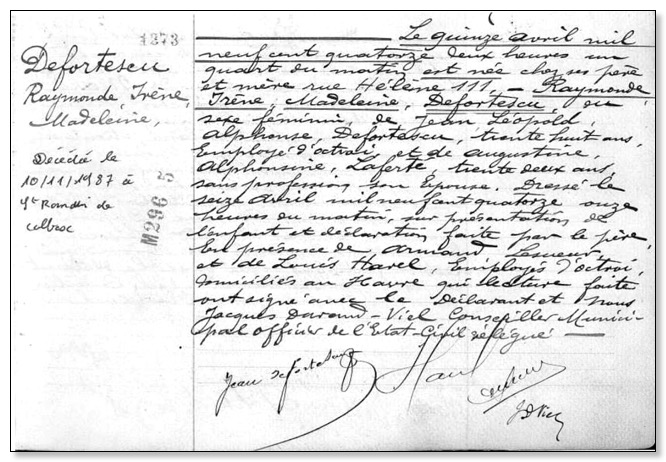 1273
Defortescu
Raymonde, Irène,
Madeleine,
Décédé le
10/11/1987 à
St Romain de
Colbosc
M296 25
Le quinze avril mil
neuf cent quatorze deux heures un
quart du matin est née chez ses père
et mère rue Hélène 111, – Raymonde,
Irène, Madeleine, Defortescu, du
sexe féminin, de Jean Léopold,
Alphonse, Defortescu, trente huit ans,
Employé d'octroi, et de Augustine,
Alphonsine, Laferté, trente deux ans
sans profession son Epouse. Dressé le
seize avril mil neuf cent quatorze onze
heures du matin, sur présentation de
l'enfant et déclaration faite par le père,
En présence de Armand Lesueur
et de Louis Harel, Employés d'octroi,
domiciliés au Havre qui lecture faite
ont signé avec le Déclarant et Nous
Jacques Durand-Viel Conseiller Munici-
pal officier de l'Etat-Civil délégué —
Jean Defortescu